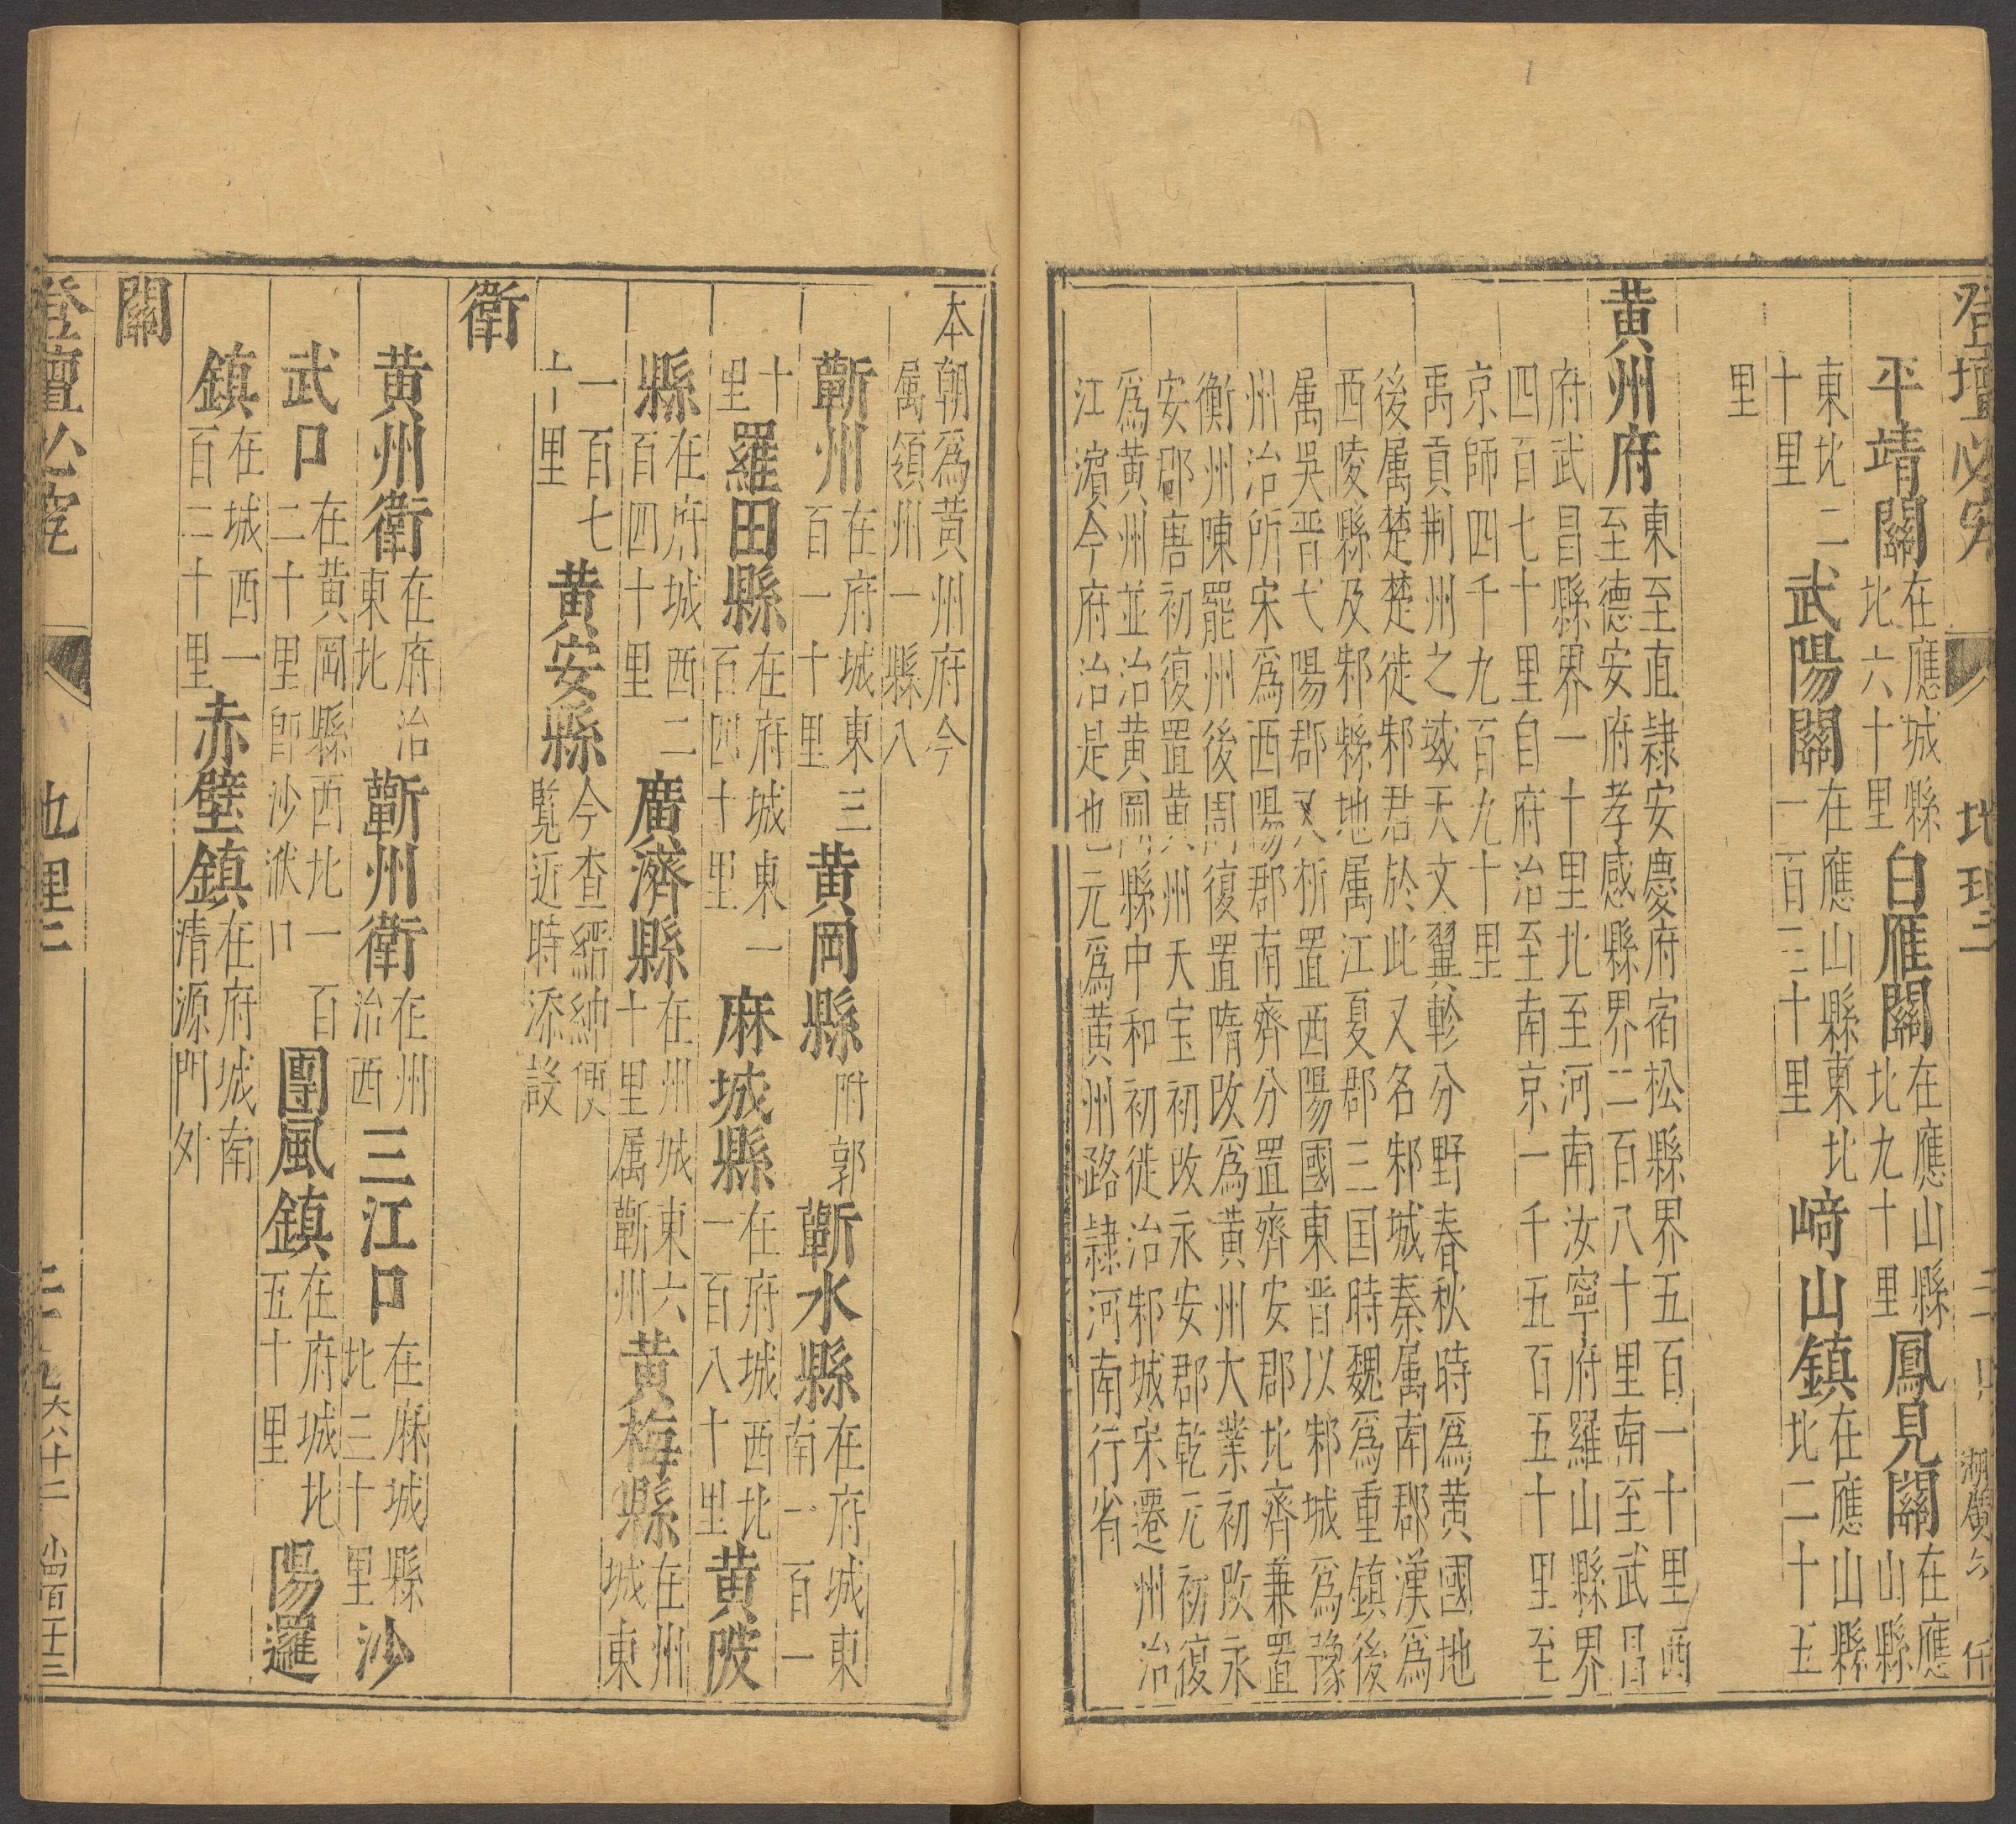 登壇必究 地理二 湖廣
平靖關在應城縣北六十里白雁關在應山縣北九十里鳳見關在應山縣
東北二十里武陽關在應山縣東北一百三十里﨑山鎮在應山縣北二十五
里
黃州府東至直隸安慶府宿松縣界五百一十里西至德安府孝感縣界二百八十里南至武昌
府武昌縣界一十里北至河南汝寧府羅山縣界
四百七十里自府治至南京一千五百五十里至
京師四千九百九十里
禹貢荆州之域天文翼軫分野春秋時爲黃國地
後属楚楚徙邾君於此又名邾城秦属南郡漢爲
西陵縣及邾縣地属江夏郡三国時魏爲重鎮後
属吳晋弋陽郡又析置西陽國東晋以邾城爲豫
州治所宋爲西陽郡南齊分置齊安郡北齊兼置
衡州陳罷州後周復置隋改爲黃州大業初改永
安郡唐初復置黃州天宝初改永安郡乾元初復
爲黃州並治黃岡縣中和初徙治邾城宋遷州治
江濵今府治是也元爲黃州路隷河南行省
本朝爲黃州府今
属領州一縣八
蘄州在府城東三百一十里黃岡縣附郭蘄水縣在府城東南一百一
十里羅田縣在府城東一百四十里麻城縣在府城西北一百八十里黃陂
縣在府城西二百四十里廣濟縣在州城東六十里属蘄州黃梅縣在州城東
一百七十里黃安縣今查縉紳便覧近時添設
衛
黃州衛在府治東北蘄州衛在州治西三江口在麻城縣北三十里沙
武口在黃岡縣西北一百二十里卽沙洑口團風鎮在府城北五十里陽邏
鎮在城西一百二十里赤壁鎮在府城南清源門外
關
登壇必究 地理二 大六十二 小四百二十三